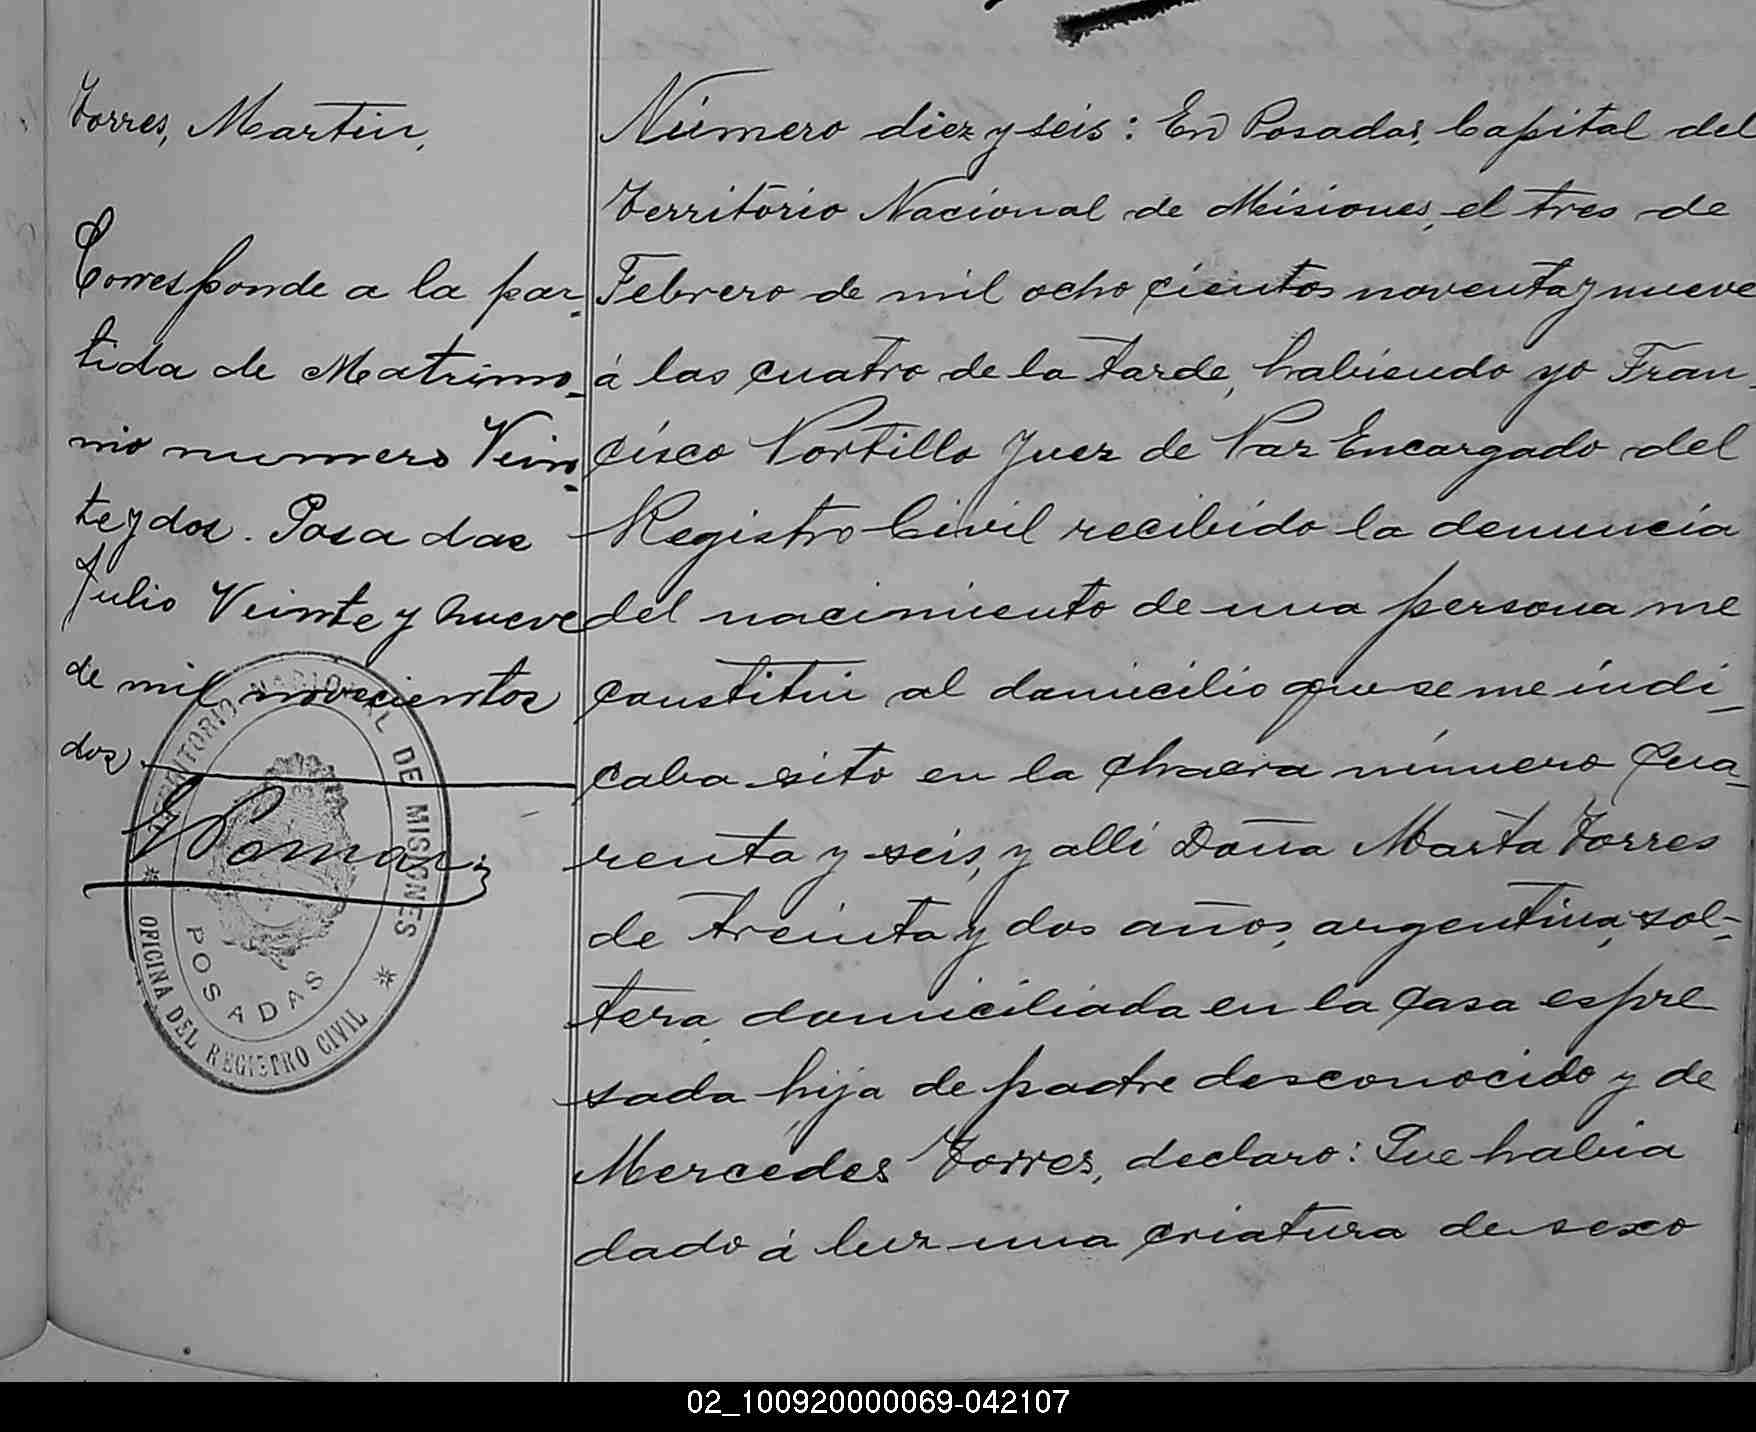 Torres, Martin,
Corresponde a la par-
tida de Matrimo-
nio numero Vein-
te y dos. Posadas
Julio Veinte y nueve
de mil novecientos
dos
TERRITORIO NACIONAL DE MISIONES
POSADAS
OFICINA DEL REGISTRO CIVIL
Número diez y seis: En Posadas, Capital del
Territorio Nacional de Misiones, el tres de
Febrero de mil ocho cientos noventa y nueve
á las cuatro de la tarde, habiendo yo Fran-
cisco Portillo Juez de Paz Encargado del
Registro Civil recibido la denuncia
del nacimiento de una persona me
constitui al domicilio que se me indi-
caba sito en la chacra número cua-
renta y seis, y alli Doña Marta Torres
de treinta y dos años, argentina, sol-
tera, domiciliada en la casa espre
sada, hija de padre desconocido y de
Mercedes Torres, declaro: Que habia
dado á luz una criatura de sexo
02_100920000069-042107